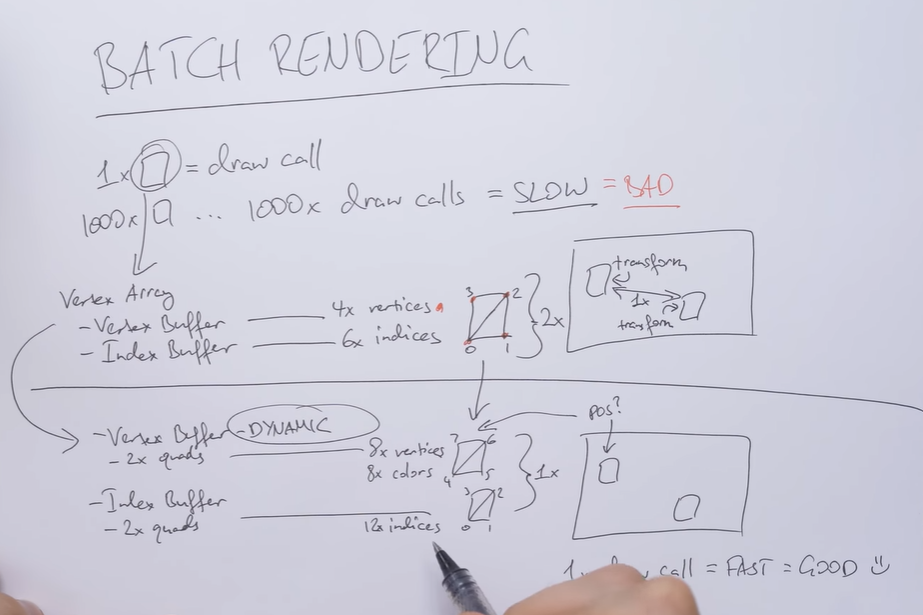 BATCH RENDERING
1x = draw call
1000x ... 1000x draw calls = SLOW = BAD
Vertex Array
- Vertex Buffer 4x vertices
- Index Buffer 6x indices
3 2
0 1
2x
transform
1x
transform
- Vertex Buffer - DYNAMIC
- 2x quads 8x vertices
8x colors
7 6
4 5
1x
pos?
- Index Buffer
- 2x quads 12x indices
3 2
0 1
call = FAST = GOOD